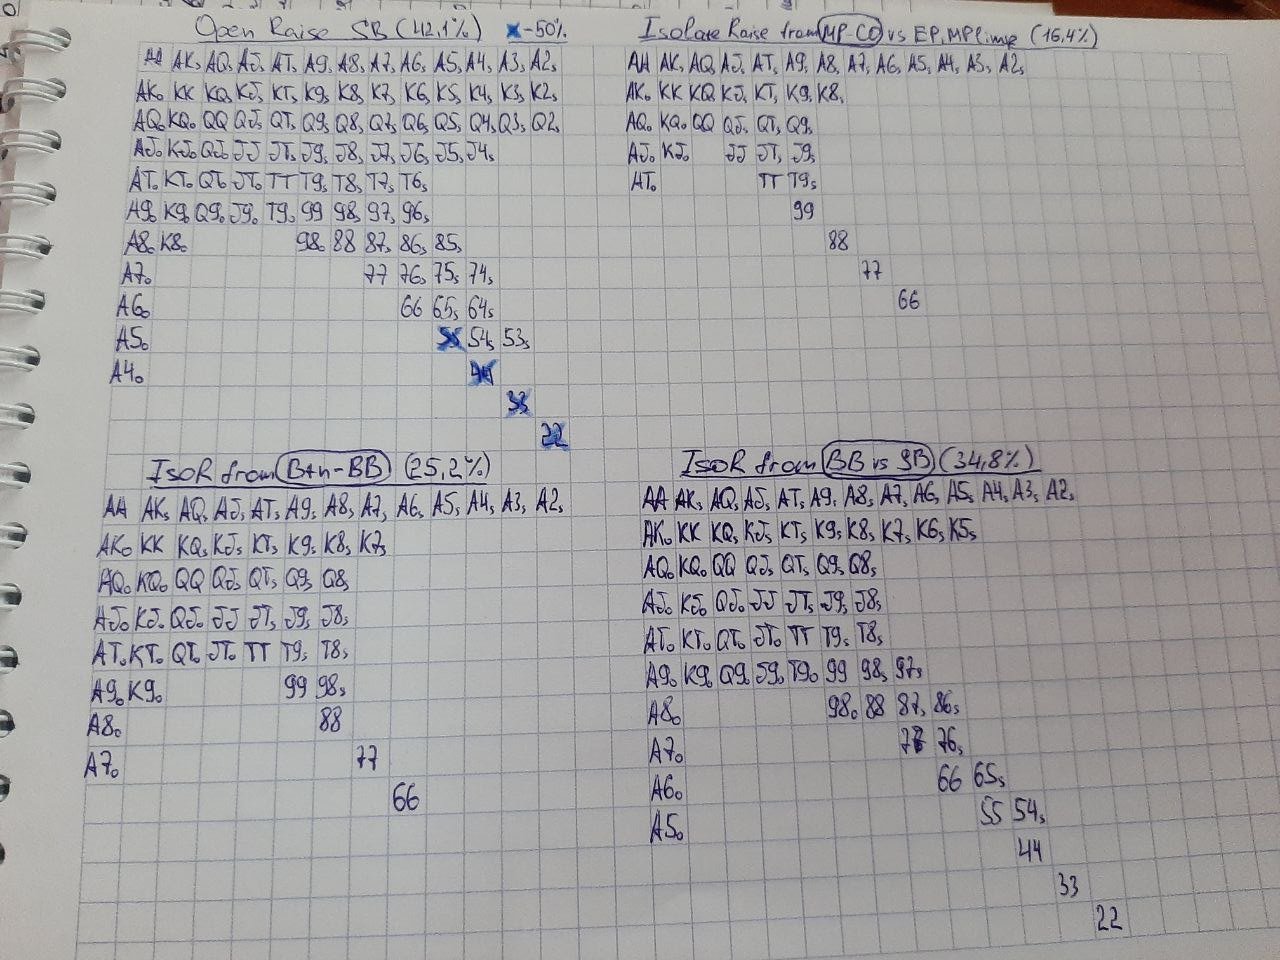 Open Raise SB (42,1%) x-50%
AA AKs AQs AJs ATs A9s A8s A7s A6s A5s A4s A3s A2s
AKo KK KQs KJs KTs K9s K8s K7s K6s K5s K4s K3s K2s
AQo KQo QQ QJs QTs Q9s Q8s Q7s Q6s Q5s Q4s Q3s Q2s
AJo KJo QJo JJ JTs J9s J8s J7s J6s J5s J4s
ATo KTo QTo JTo TT T9s T8s T7s T6s
A9o K9o Q9o J9o T9o 99 98s 97s 96s
A8o K8o 98o 88 87s 86s 85s
A7o 77 76s 75s 74s
A6o 66 65s 64s
A5o 55 54s 53s
A4o 44
33
22
Isolate Raise from MP-CO vs EP, MP limp (16,4%)
AA AKs AQs AJs ATs A9s A8s A7s A6s A5s A4s A3s A2s
AKo KK KQs KJs KTs K9s K8s
AQo KQo QQ QJs QTs Q9s
AJo KJo JJ JTs J9s
ATo TT T9s
99
88
77
66
IsoR from Btn-BB (25,2%)
AA AKs AQs AJs ATs A9s A8s A7s A6s A5s A4s A3s A2s
AKo KK KQs KJs KTs K9s K8s K7s
AQo KQo QQ QJs QTs Q9s Q8s
AJo KJo QJo JJ JTs J9s J8s
ATo KTo QTo JTo TT T9s T8s
A9o K9o 99 98s
A8o 88
A7o 77
66
IsoR from BB vs SB (34,8%)
AA AKs AQs AJs ATs A9s A8s A7s A6s A5s A4s A3s A2s
AKo KK KQs KJs KTs K9s K8s K7s K6s K5s
AQo KQo QQ QJs QTs Q9s Q8s
AJo KJo QJo JJ JTs J9s J8s
ATo KTo QTo JTo TT T9s T8s
A9o K9o Q9o J9o T9o 99 98s 97s
A8o 98o 88 87s 86s
A7o 77 76s
A6o 66 65s
A5o 55 54s
44
33
22